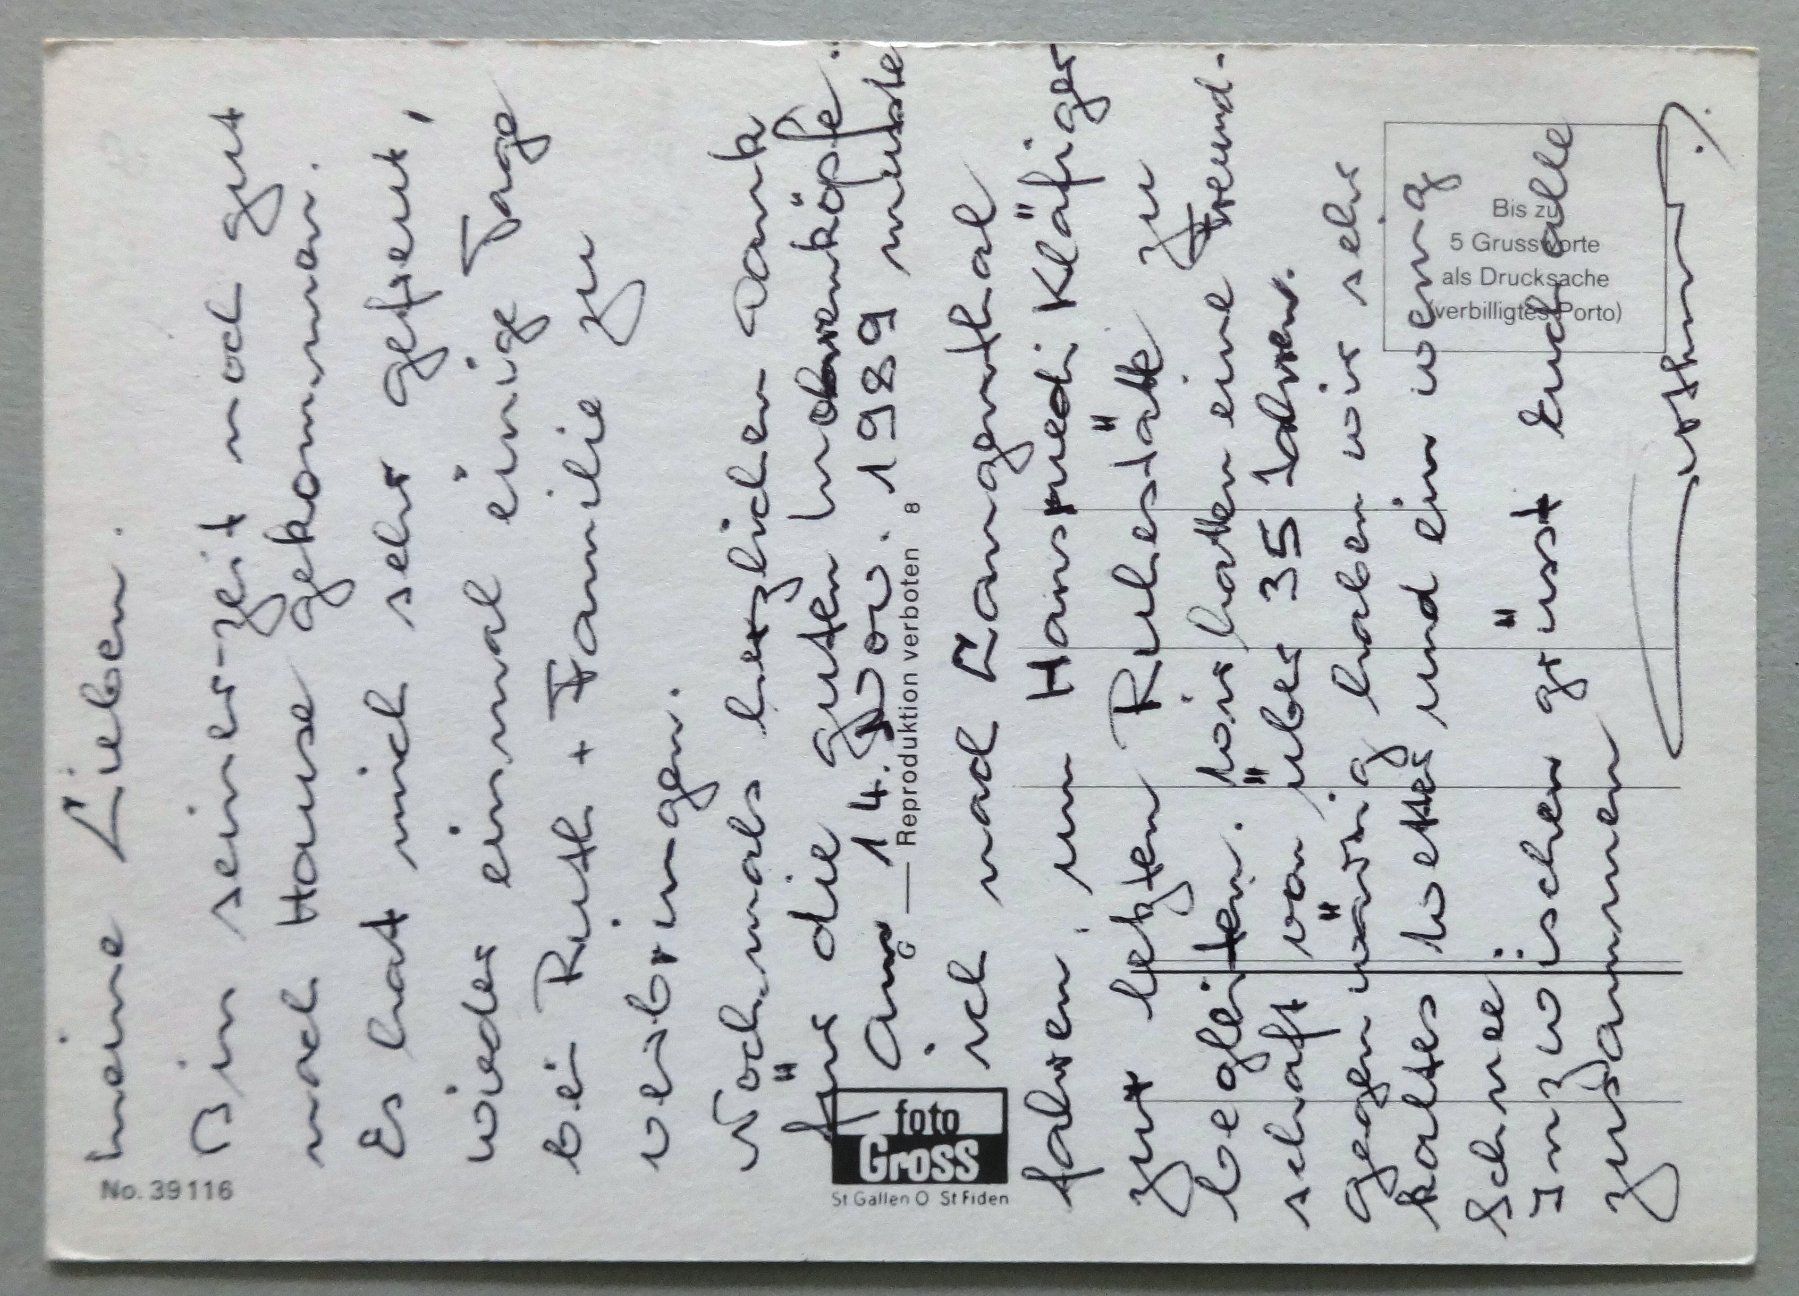 Meine Lieben.
Bin seiner-zeit noch gut
nach Hause gekommen.
Es hat mich sehr gefreut,
wieder einmal einige Tage
bei Ruth + Familie zu
verbringen.
Nochmals herzlichen Dank
für die guten Mohrenköpfe.
Am 14. Nov. 1989 muste
ich nach Langenthal
fahren, um Hansruedi Kläfiger
zur letzten Ruhestätte zu
begleiten. Wir hatten eine Freund-
schaft von über 35 Jahren.
Gegenwärtig haben wir sehr
kaltes Wetter und ein wenig
Schnee.
Inzwischen grüsst Euch alle
zusammen
No. 39116
foto
Gross
St Gallen O St Fiden
G — Reproduktion verboten 8
Bis zu
5 Grussworte
als Drucksache
(verbilligtes Porto)